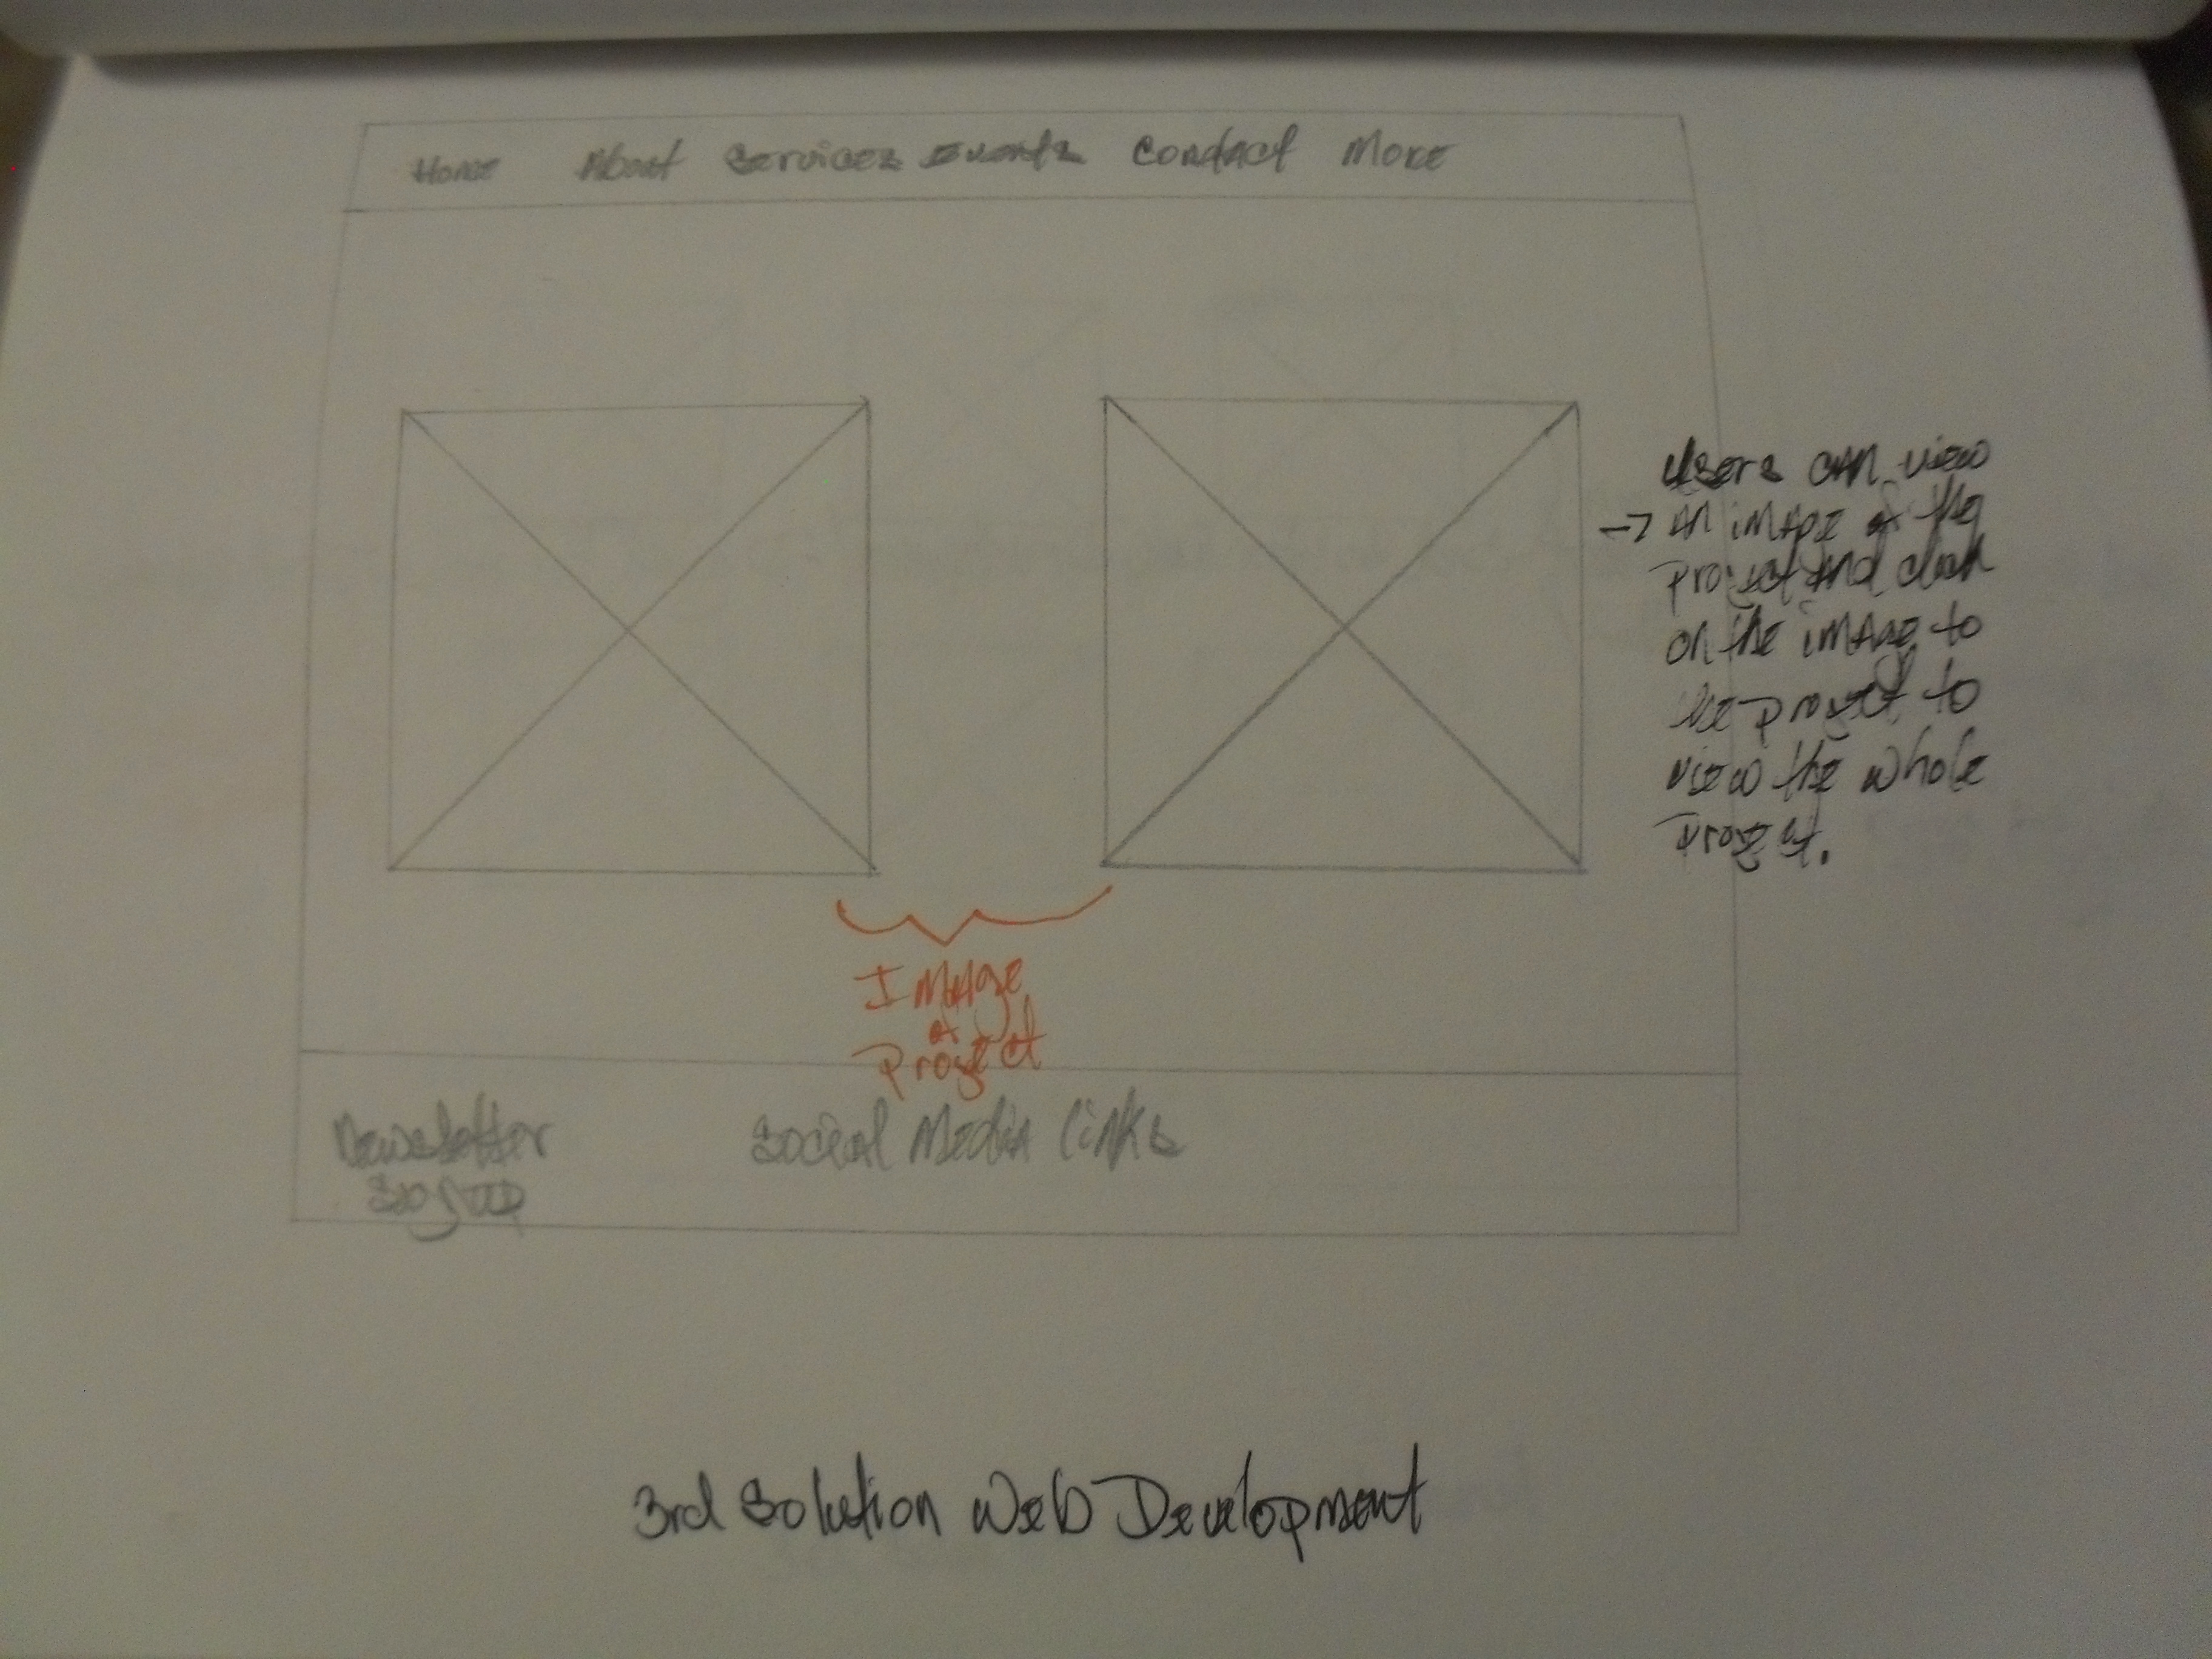 Home About Services Events Contact More
Users can view
→ an image of the
project and click
on the image to
the project to
view the whole
project.
Image
of
Project
Newsletter
Signup
Social Media links
3rd Solution Web Development